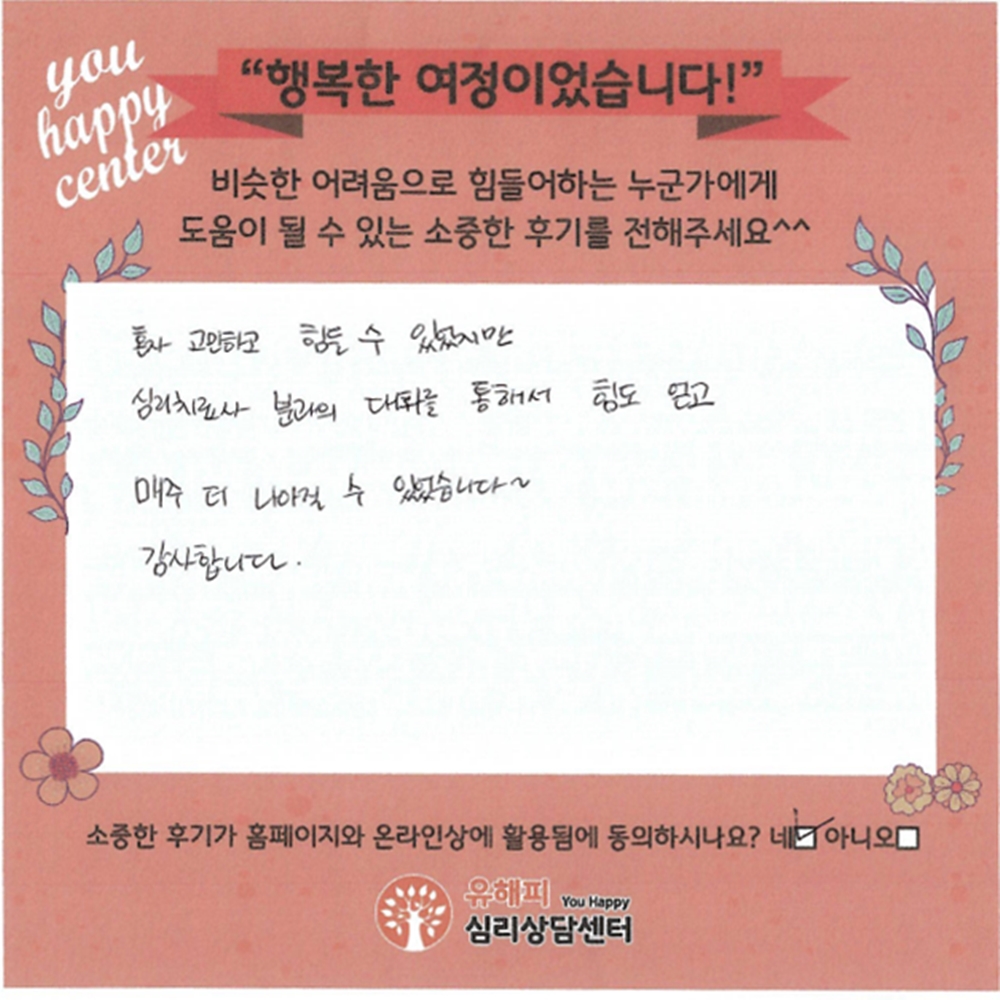 you
happy
center
“행복한 여정이었습니다!”
비슷한 어려움으로 힘들어하는 누군가에게
도움이 될 수 있는 소중한 후기를 전해주세요^^
혼자 고민하고 힘들 수 있었지만
심리치료사 분과의 대화를 통해서 힘도 얻고
매주 더 나아질 수 있었습니다~
감사합니다.
소중한 후기가 홈페이지와 온라인상에 활용됨에 동의하시나요? 네☑ 아니오☐
유해피 You Happy
심리상담센터